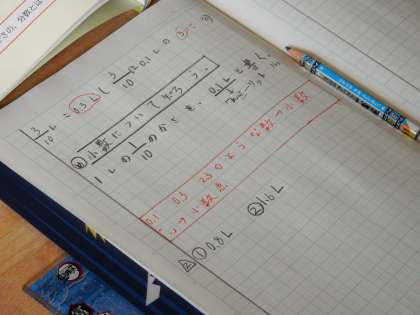 3/10 L = 0.3 L ( 3/10 は 0.1 L の ③ こ分)
め 小数について知ろう。
1 L の 1/10 のかさを、0.1 L と書く。
れい点一リットル
0.1 0.3 2.3 のような数→小数
→小数点
① 0.8 L
② 1.6 L